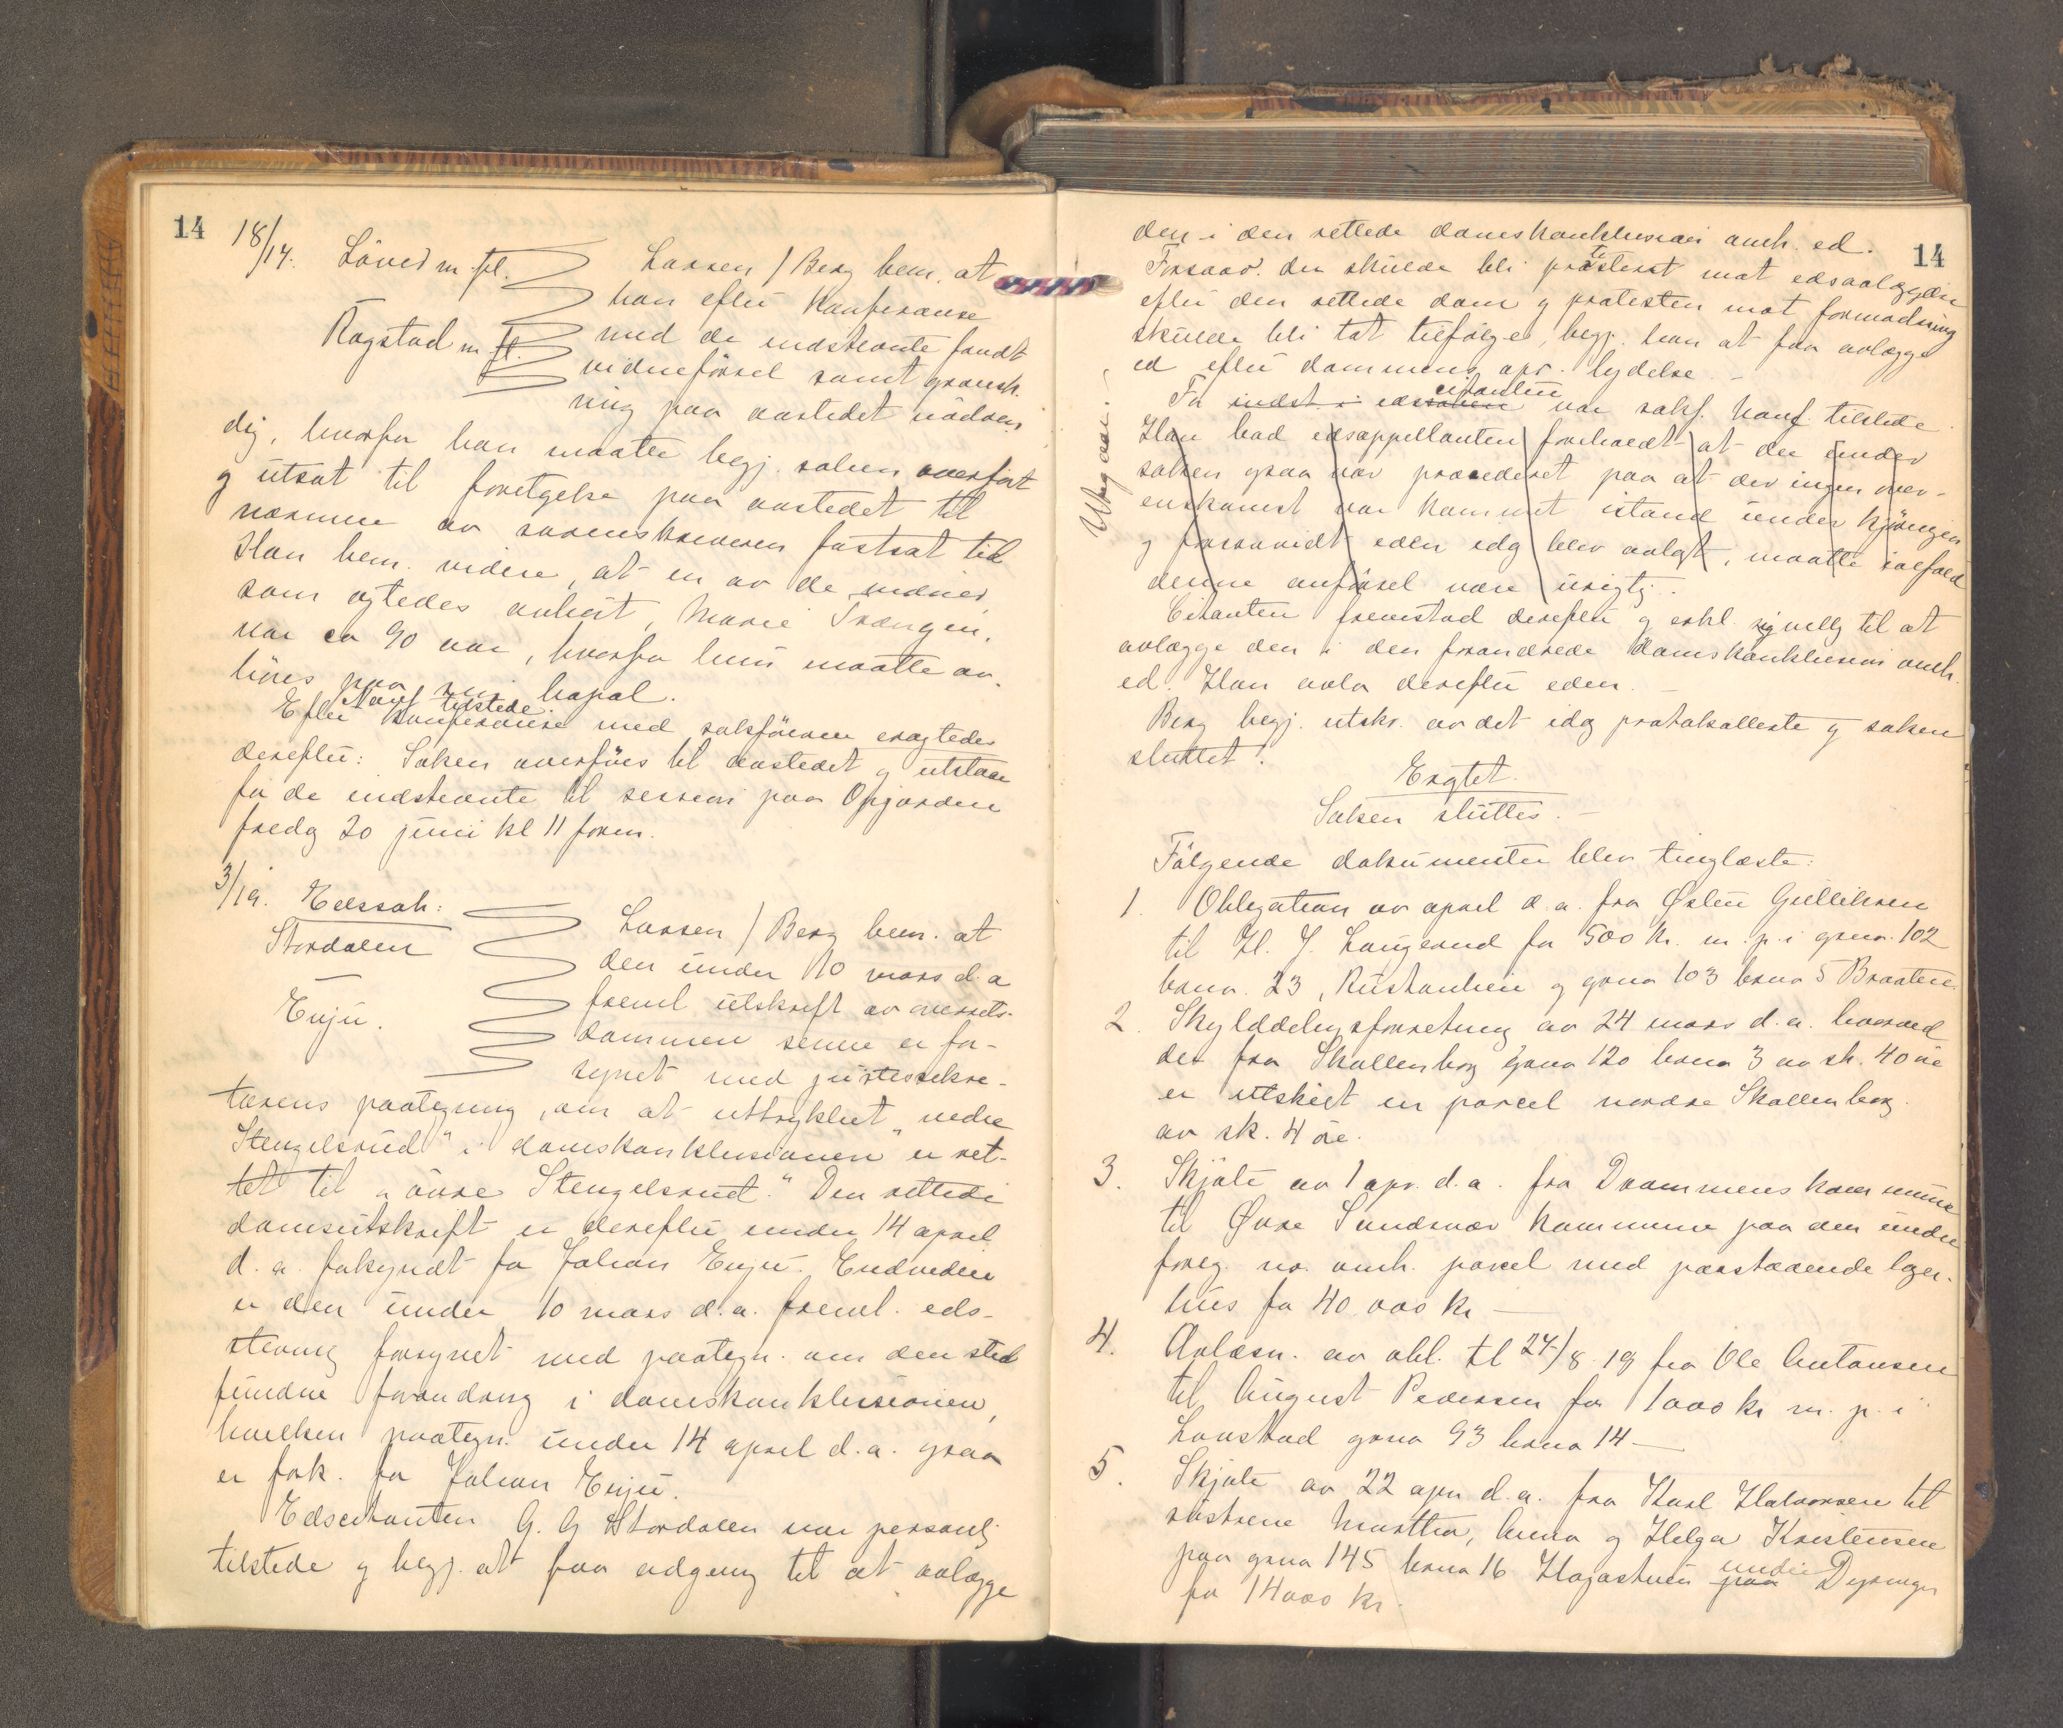 14
18/14. Löver m. fl.
Ragstad m. fl.
Larsen / Berg bem. at
han efter konferanse
med de indstevnte fandt
vidneförsel samt gransk-
ning paa aastedet nödven-
dig, hvorfor han maatte begj. saken overfört
g utsat til foretagelse paa aastedet til
nærmere av sorenskriveren fastsat tid
Han bem. videre, at en av de vidner,
som agtedes anhört, Marie
var ca 90 aar, hvorfor hun maatte av-
höres paa sin bopæl.
Nauf tilstede
Efter konferanse med sakförerne eragtedes
derefter: Saken overföres til aastedet g utstaar
for de indstevnte til session paa Opgarden
fredag 20 juni kl 11 form.
3/19. Edssak:
Stordalen
Enju.
Larsen / Berg bem. at
den under 10 mars d. a
freml utskrift av overrets-
dommen senere er for-
synet med justissekre-
tærens paategning, om at uttrykket "nedre
Stengelsrud" i domskonklusionen er ret-
tet til "övre Stengelsrud." Den rettede
domsutskrift er derefter under 14 april
d. a. forkyndt for Johan Enju. Endvidere
er den under 10 mars d. a. freml. eds-
stevning forsynet med paategn. om den sted
fundne forandring i domskonklusionen,
hvilken paategn. under 14 april d. a. ogsaa
er fork. for Johan Enju.
Edscitanten G. G Stordalen var personlig
tilstede g begj. at faa adgang til at avlægge
14
den i den rettede domskonklusion omh. ed.
Forsaav. der skulde bli protestert mot edsavlæggelse
efter den rettede dom g protesten mot formodning
skulde bli tat tilfölge, begj. han at faa avlægge
ed efter dommens opr. lydelse. –
citanten
For indst. i edssaken var sakf. Nauf tilstede
Han bad edsappellanten foreholdt at der under
saken ogsaa var procederet paa at der ingen over-
enskomst var kommet istand under
g forsaavidt eden idag blev avlagt, maatte ialfald
denne anförsel være urigtig.
Citanten fremstod derefter g erkl. sig villig til at
avlægge den i den forandrede domskonklusion omh.
ed. Han avla derefter eden. –
Berg begj. utskr. av det idag protokollerte g saken
sluttet.
Eragtet.
Saken sluttes. –
Følgende dokumenter blev tinglæste:
1. Obligation av april d. a. fra Østen Gulliksen
til H. J. Laugerud for 500 kr. m. p. i grno. 102
brno. 23, Rustanlien g grno 103 brno 5 Braaten.
2. Skylddelingsforretning av 24 mars d. a. hvorved
der fra Skollenborg grno 120 brno 3 av sk. 40 öre
er utskilt en parcel nordre Skollenborg
av sk. 4 öre.
3. Skjöte av 1 apr. d. a. fra Drammens kommune
til Øvre Sandsvær kommune paa den under
foreg. no. omh. parcel med paastaaende lager-
hus for 40.000 kr –
4. Avlæsn. av obl. tl 24/8 19 fra Ole Antonsen
til August Pedersen for 1000 kr m. p. i
Lanstad grno 93 brno 14 –
5. Skjöte av 22 apr d. a. fra Karl Halvorsen til
söstrene Martha, Anna g Helga Kristensen
under
paa grno 145 brno 16 Hagastuen paa
for 14000 kr.